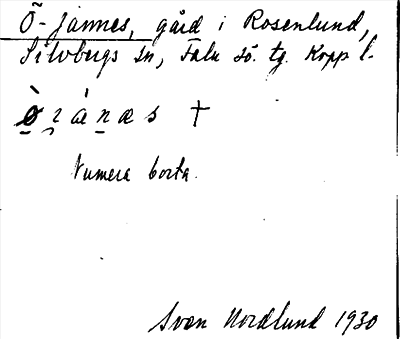 Ö-Jannes, gård i Rosenlund,
Silvbergs sn, Falu sö. tg. Kopp l.
ö̀ z á n æ s †
Numera borta.
Sven Nordlund 1930